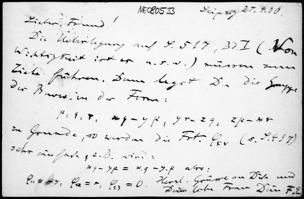 NE080533 Leipzig 25.4.90
Lieber Freund!
Die Überlegung auf S. 517, Bd I (Von
Wichtigkeit ist er u.s.w.) müssen zum
Ziele führen. Dann legst Du die Gruppe
der Beweg. in der Form:
p, q, r, xq-yp, yr-zq, zp-xr
zu Grunde, so werden die Fct. (o. S. 517)
sehr einfach z.B. wird:
xq-yp = xq-y.p also:
= -y, = x, = 0. Herzl. Grüsse an Dich und
Deine liebe Frau Dein F.E.